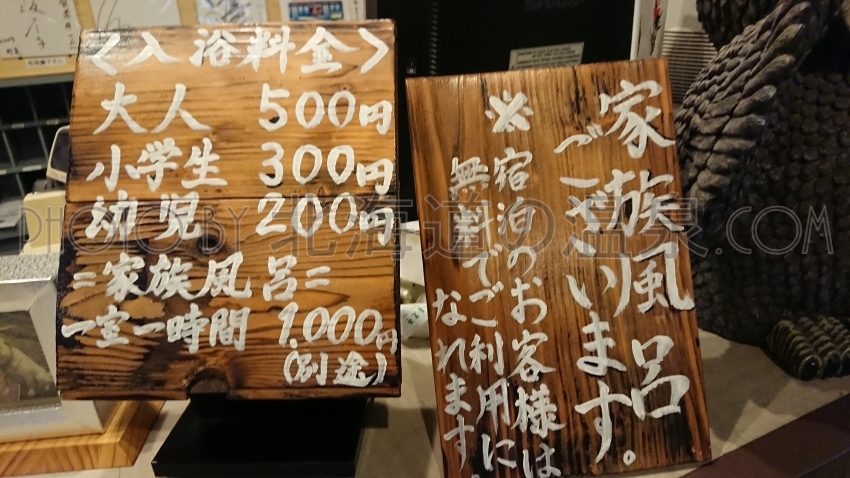 <入浴料金>
大人 500円
小学生 300円
幼児 200円
=家族風呂=
一室一時間 1.000円
(別途)
家族風呂
ございます。
※宿泊のお客様は
無料でご利用に
なれます。
PHOTO BY 北海道の温泉.COM
SHARP